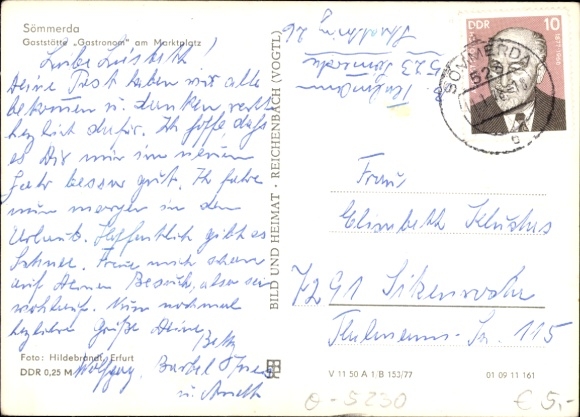 Sömmerda
Gaststätte „Gastronom" am Marktplatz
Liebe Lisbeth!
Deine Post haben wir alle
bekommen u. danken recht
herzlich dafür. Ich hoffe daß
es Dir nun im neuen
Jahr besser geht. Ich fahre
nun morgen in den
Urlaub. Hoffentlich gibt es
Schnee. Freue mich schon
auf Deinen Besuch, also sei
wohlauf. Nun nochmal
herzliche Grüße Deine
Wolfgang, Bärbel
u.
Foto: Hildebrandt, Erfurt
DDR 0,25 M
BILD UND HEIMAT · REICHENBACH (VOGTL)
523 Sömmerda
DDR 10
SÖMMERDA
523
Frau
Elisabeth
7291
Thälmann-Str. 115
V 11 50 A 1/B 153/77
01 09 11 161
O-5230
€ 5,-